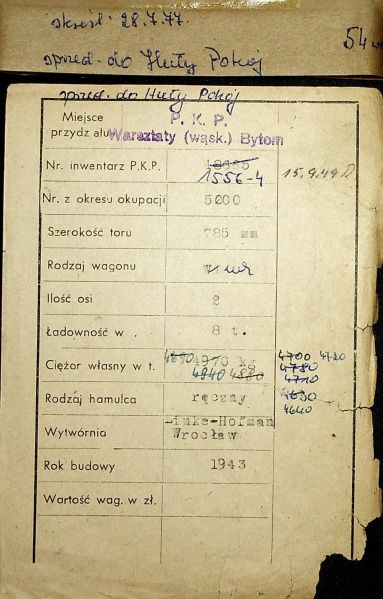 skreśl. 28.7.77.
54
sprzed. do Huty Pokój
sprzed. do Huty Pokój
Miejsce
przydz
P. K. P.
Warsztaty (wąsk.) Bytom
Nr. inwentarz P.K.P.
1556-4
15.9.49
Nr. z okresu okupacji 5000
Szerokość toru 785 mm
Rodzaj wagonu
Ilość osi 2
Ładowność w . 8 t.
Ciężar własny w t. 4690 4970 kg 4700 4720
4940 4880 4780
4710
Rodzaj hamulca ręczny 4630
4640
Wytwórnia Linke-Hofman
Wrocław
Rok budowy 1943
Wartość wag. w zł.